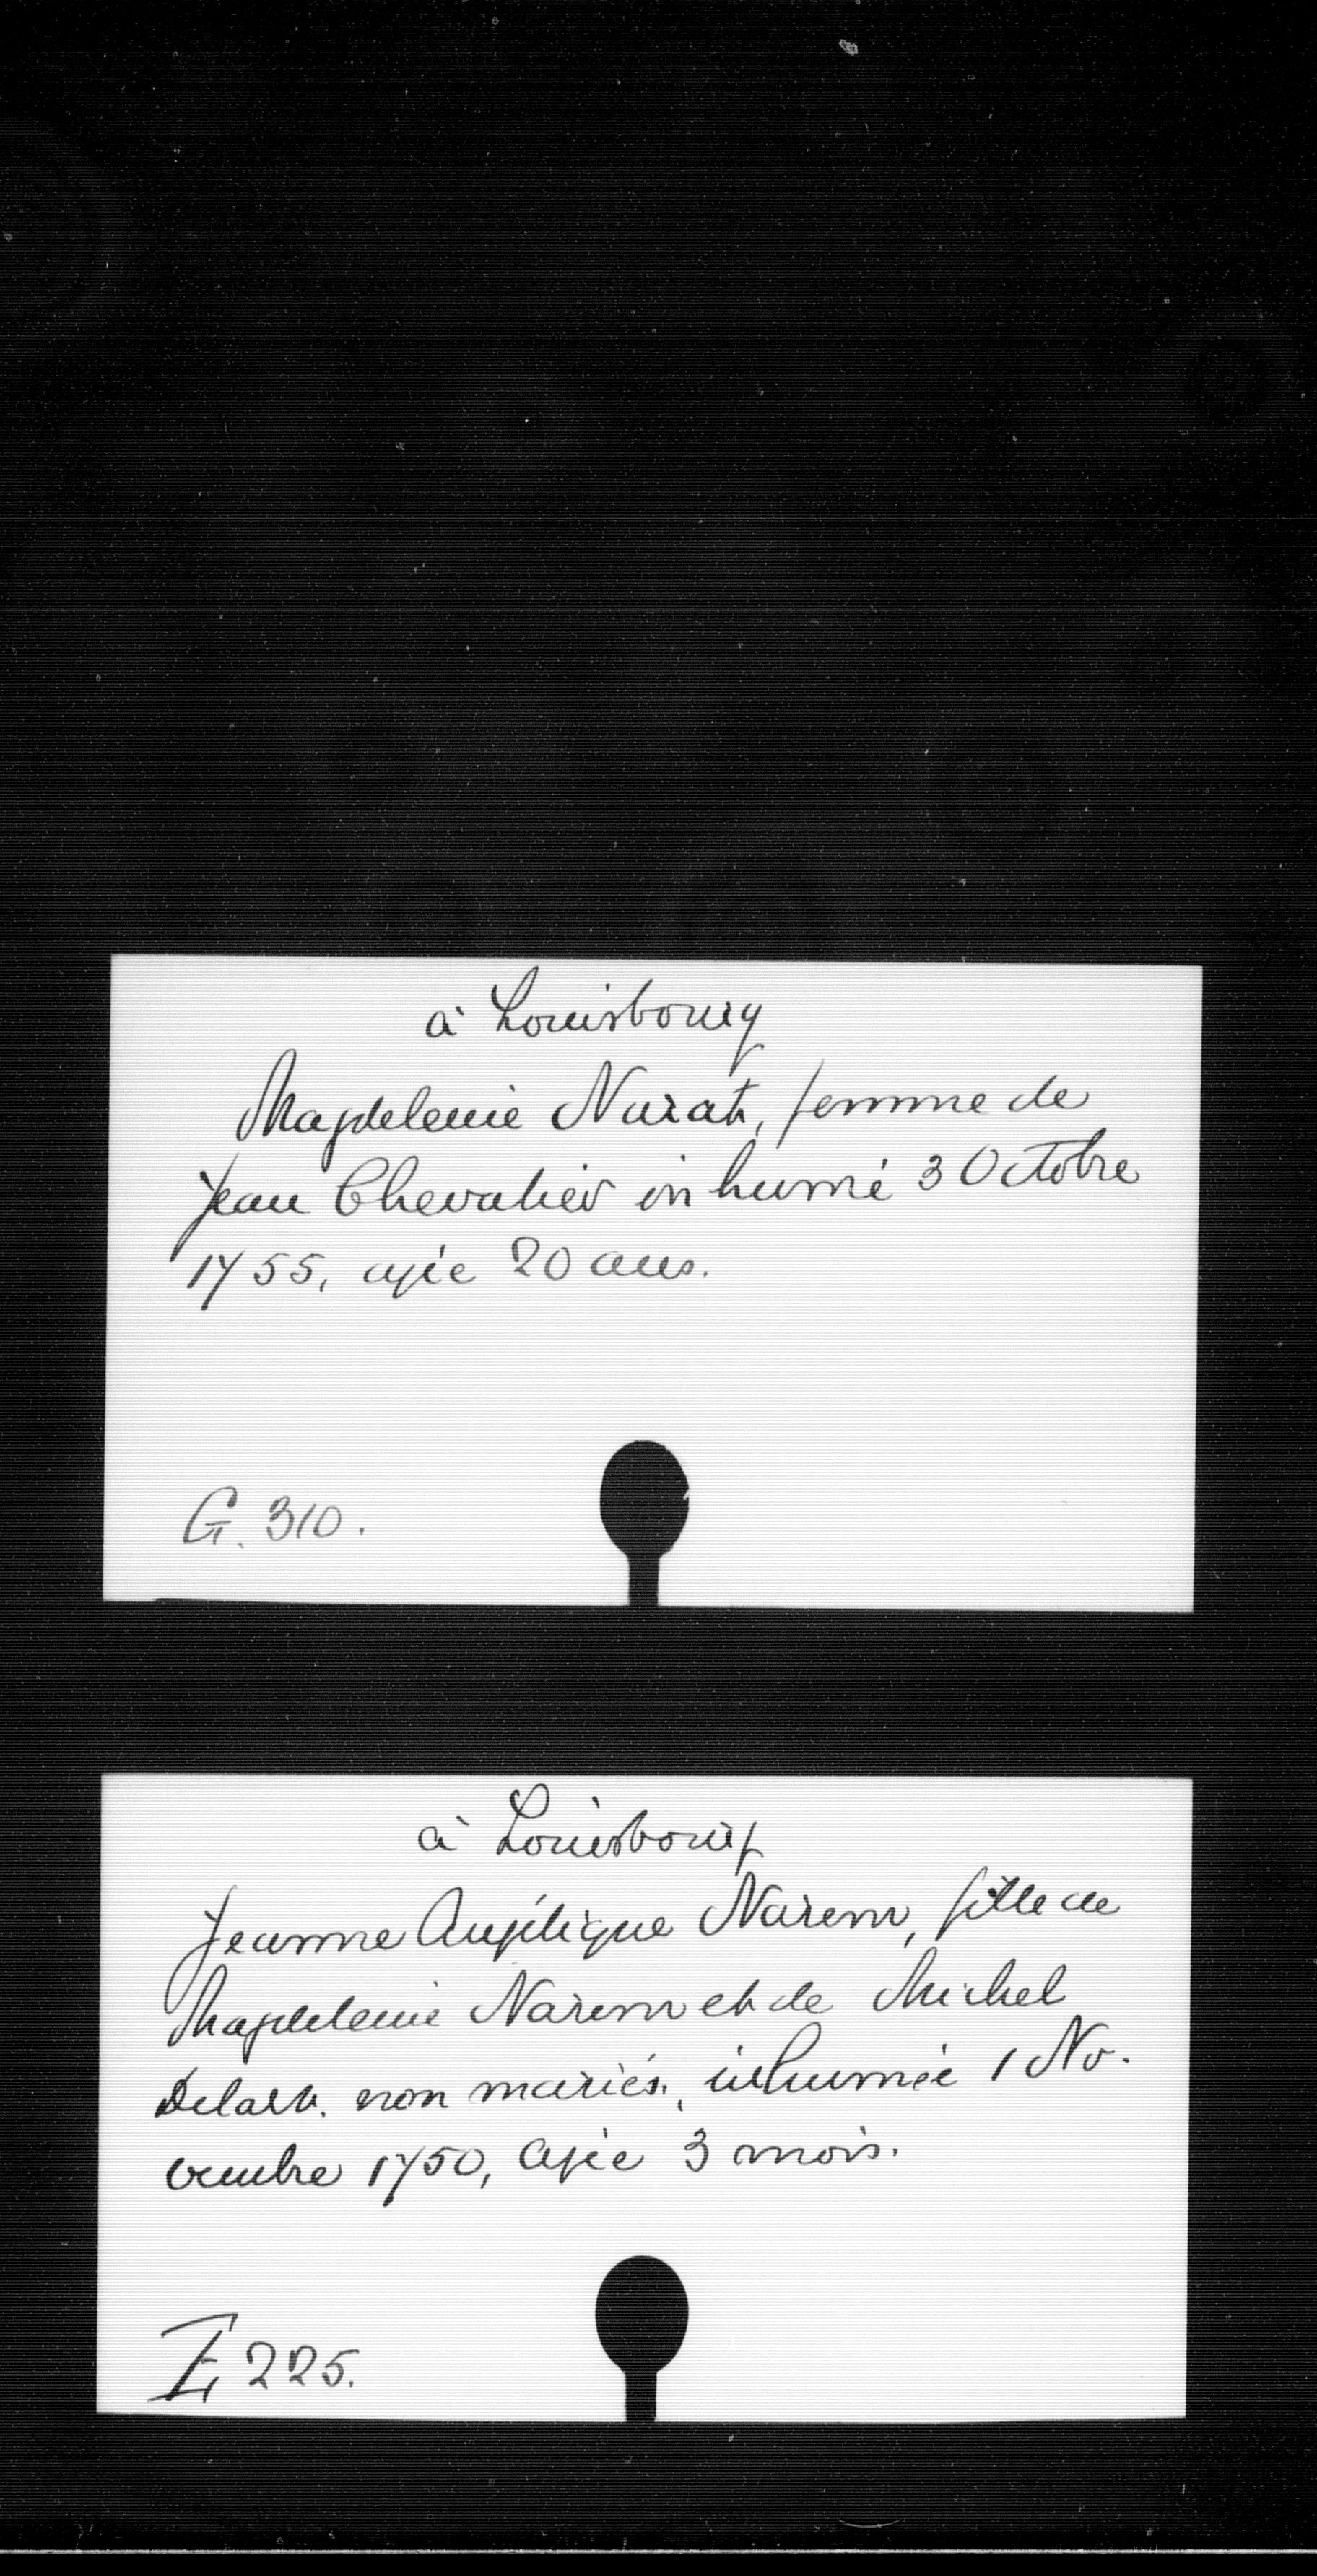 à Louisbourg
Magdeleine Narat, femme de
Jean Chevalier inhumé 3 Octobre
1755, agée 20 ans.
G. 310.
à Louisbourg
Jeanne Angélique Narem, fille de
Magdeleine Narem et de Michel
non mariés, inhumée 1 No-
vembre 1750, agée 3 mois.
E 225.